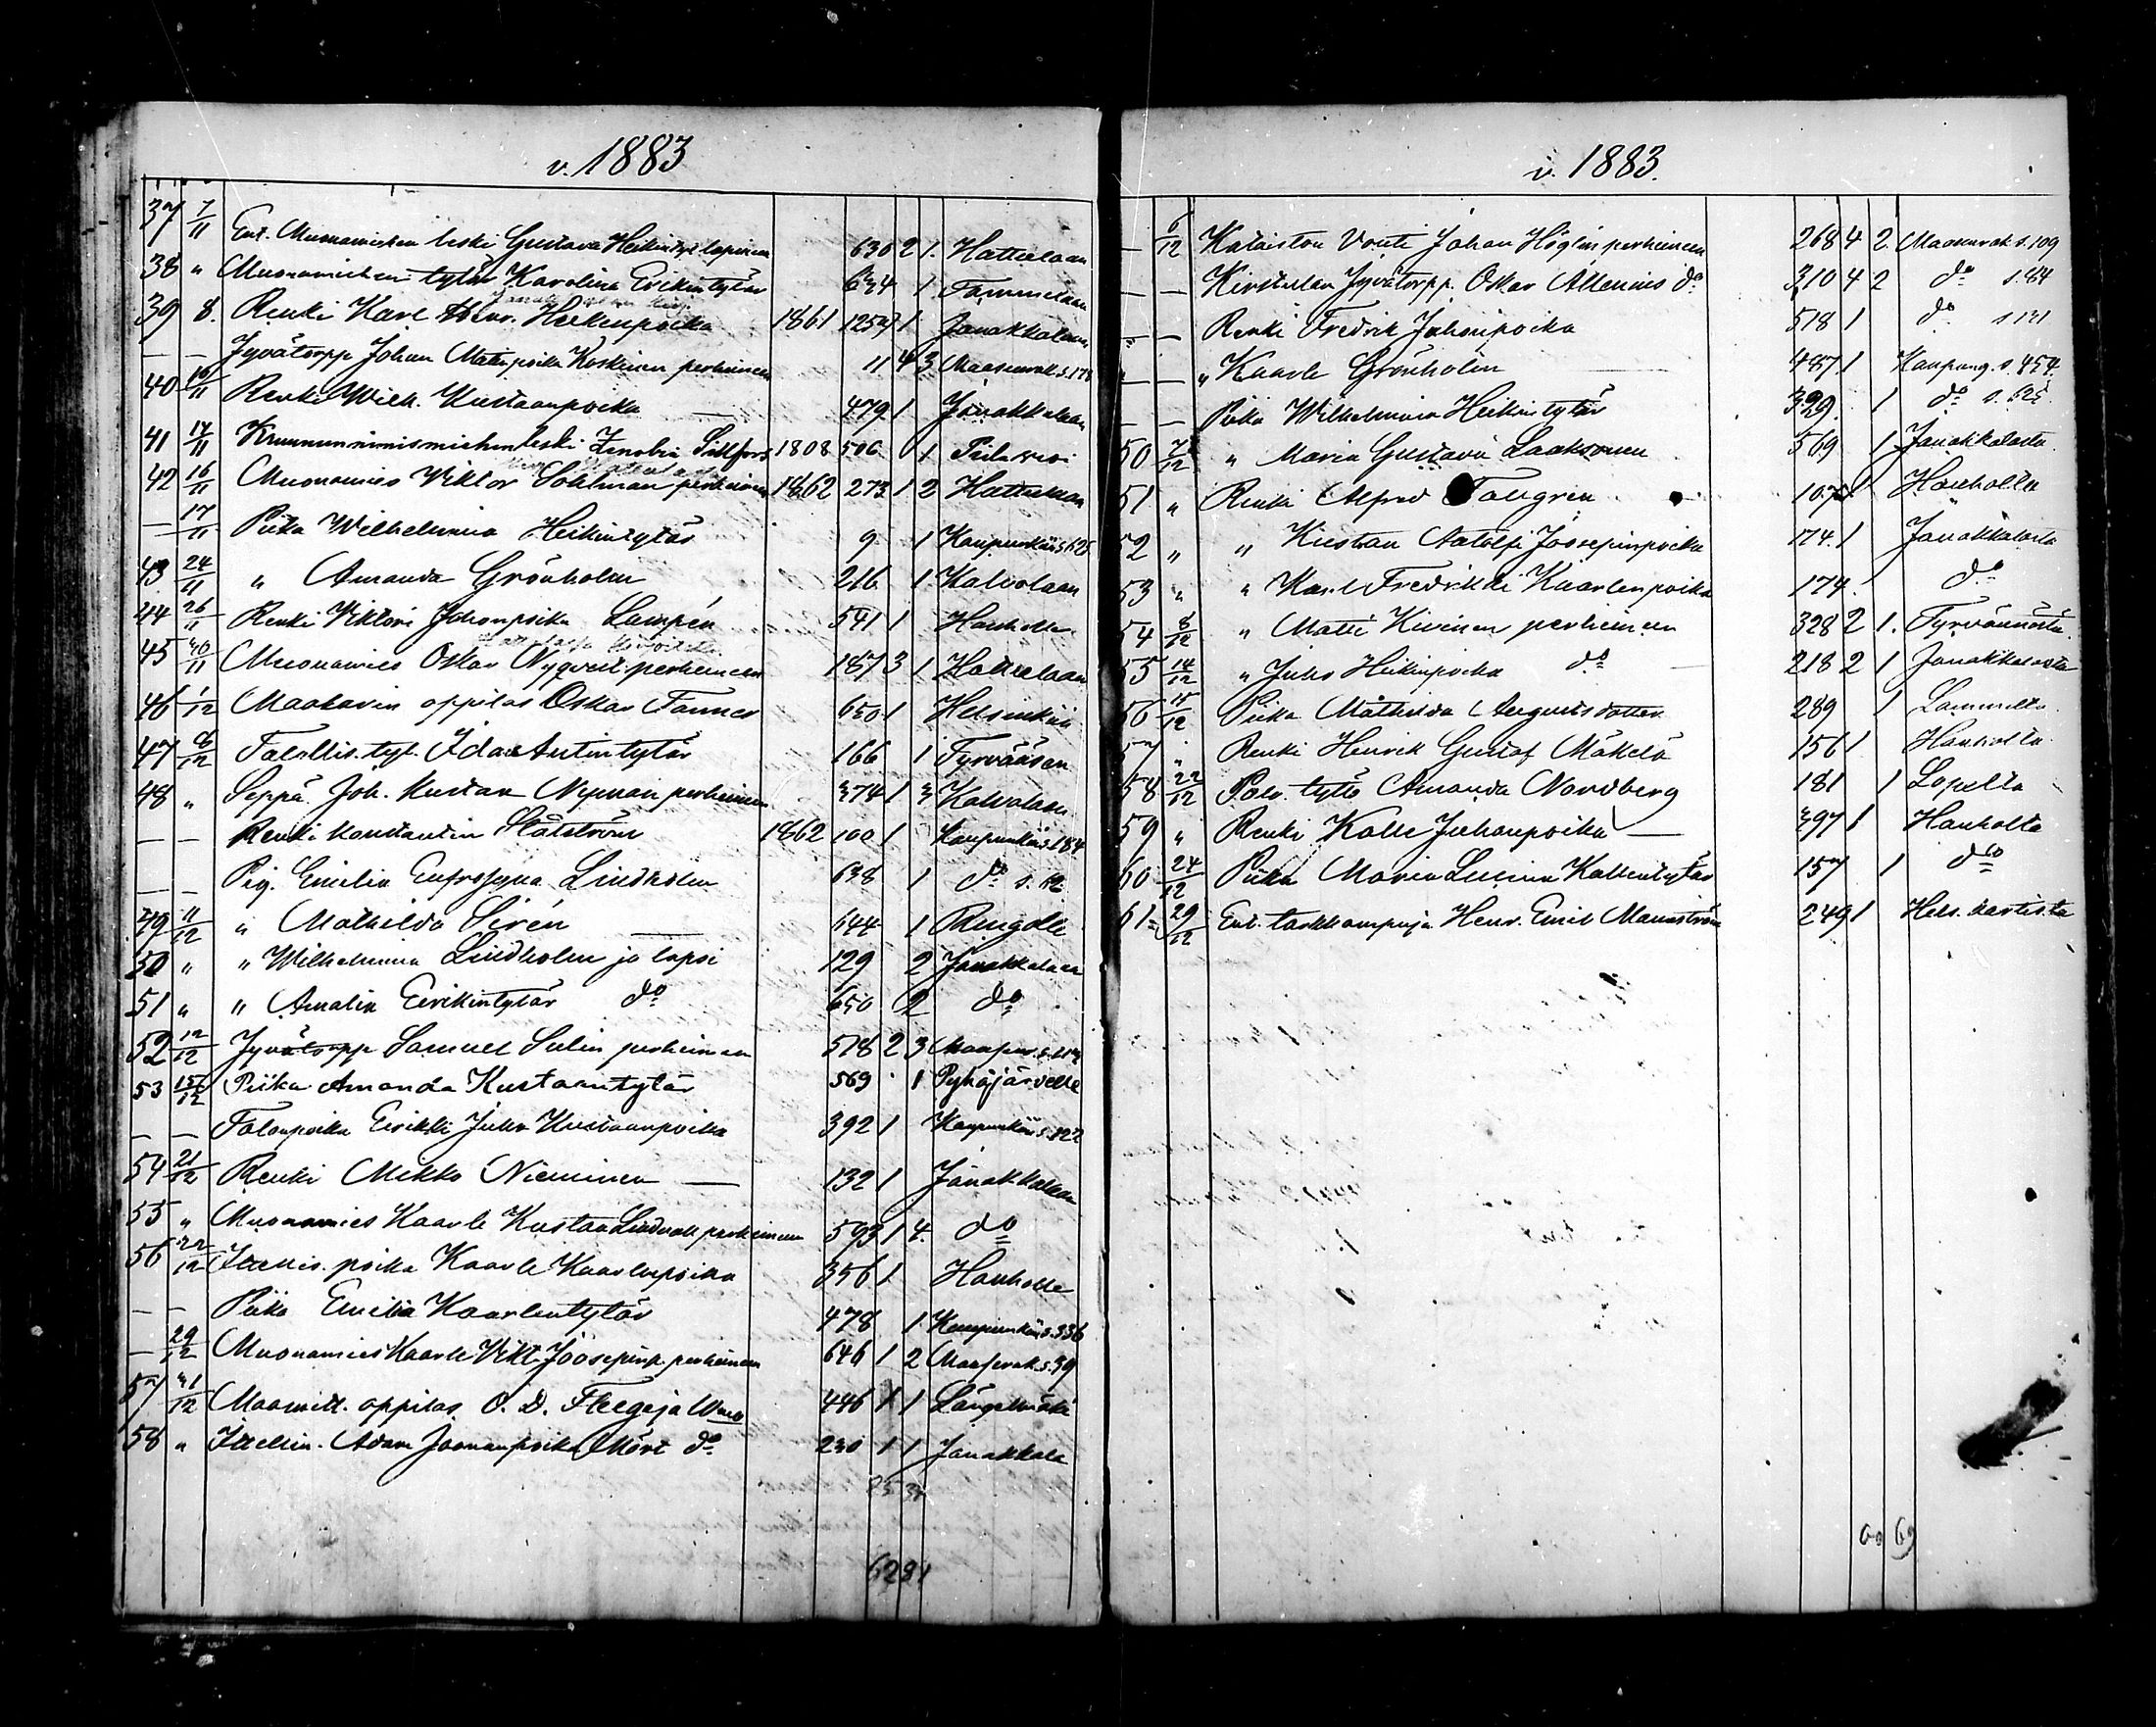 v. 1883
37 7/11 Ent. Muonamiehen leski Gustava Heikintyt lapsineen 630 2 1. Hattulaan
38 " Muonamiehen tytär Karolina Erikintytär 634 1 Tammelaan
39 8. Renki Karl Henr. Heikinpoika 1861 125 1 Janakkalaan
— — Jyvätorpp Johan Matinpoika Koskinen perheineen 11 4 3 Maaseurak s. 178
40 16/11 Renki Wilh. Kustaanpoika — 479 1 Janakkalaan
41 14/11 Kruununnimismiehen leski Zenobia Sillfors 1808 506. 1
42 16/11 Muonamies Viktor Sohlman perheineen 1862 273 1 2 Hattulaan
— 17/11 Piika Wilhelmina Heikintytär 9 1 Kaupunkiin s. 625
43 24/11 " Amanda Grönholm 216 1 Kalvolaan
44 26/11 Renki Viktori Johanpoika Lampén 541 1 Hauholle
45 30/11 Muonamies Oskar Nyqvist perheineen 187 3 1 Hattulaan
46 1/12 Maakarin oppilas Oskar Tanner 650 1 Helsinkiin
47 6/12 Talollis. tyt. Ida Antintytär 166 1 Tyrvääsen
48 " Seppä Joh. Kustaa Nyman perheineen 374 1 3 Kalvolaan
— — Renki Konstantin Slätström 1862 100 1 Kaupunkiin s. 184
— — Pig. Emilia Eufrosyna Lindholm 638 1 do s. 12
49 11/12 " Mathilda Sirén — 644 1 Rengolle
50 " " Wilhelmina Lindholm ja lapsi 129 2 Janakkalaan
51 " " Amalia Eerikintytär do 650 2 do
52 12/12 Jyvätorpp Samuel Selin perheineen 518 2 3
53 15/12 Piika Amanda Kustaantytär 569 1 Pyhäjärvelle
— — Talonpoika Eerikki Juho Kustaanpoika 392 1 Kaupunkiin s. 122
54 21/12 Renki Mikko Nieminen — 132 1 Janakkalaan
55 " Muonamies Kaarle Kustaa Lindvall perheineen 593 1 4 do
56 22/12 Itsellis. poika Kaarle Kaarlenpoika 356 1 Hauholle
— — Piika Emilia Kaarlentytär 478 1 Kaupunkiin s. 336
— 29/12 Muonamies Kaarle Vikt. Joosepinp. perheineen 646 1 2 Maaseurak. s. 39
57 31/12 Maamitt. oppilas O. D. Fleege ja Wmo 446 1 1 Längelmäki
58 " Itsellin. Adam Joonanpoika Mört do 230 1 1 Janakkala
v. 1883.
— 6/12 Kataiston Vouti Johan Höglin perheineen 268 4 2 Maaseurak s. 109
— — Kirstulan Jyvätorpp. Oskar Allenius do 310 4 2 do s. 84
— — Renki Fredrik Juhonpoika 518 1 do s 131
" — " Kaarle Grönholm 487. 1 Kaupung. s. 454.
— — Piika Wilhelmiina Heikintytär 329. 1 do s. 625
50 7/12 " Maria Gustava Laaksonen 569 1 Janakkalasta
51. " Renki Alfred Tallgren 107. 1 Hauholta
52 " " Kustaa Aatolfi Joosepinpoika 174. 1 Janakkalasta
53 " " Karl Fredrikki Kaarlenpoika 174. 1 do
54 8/12 " Matti Kivinen perheineen 328 2 1. Tyrväännöstä
55 14/12 " Juho Heikinpoika do — 218 2 1 Janakkalasta
56 15/12 Piika Mathilda Augustsdotter 289 1 Lammilta
57 " Renki Henrik Gustaf Mäkelä 156 1 Hauholta
58 22/12 Palv. tyttö Amanda Nordberg 181 1 Lopelta
59 " Renki Kalle Juhanpoika — 397 1 Hauholta
60 24/12 Piika Maria Leena Kallentytär 157 1 do
61 29/12 Ent. tarkkampuja Henr. Emil Mannström 249 1
60 69